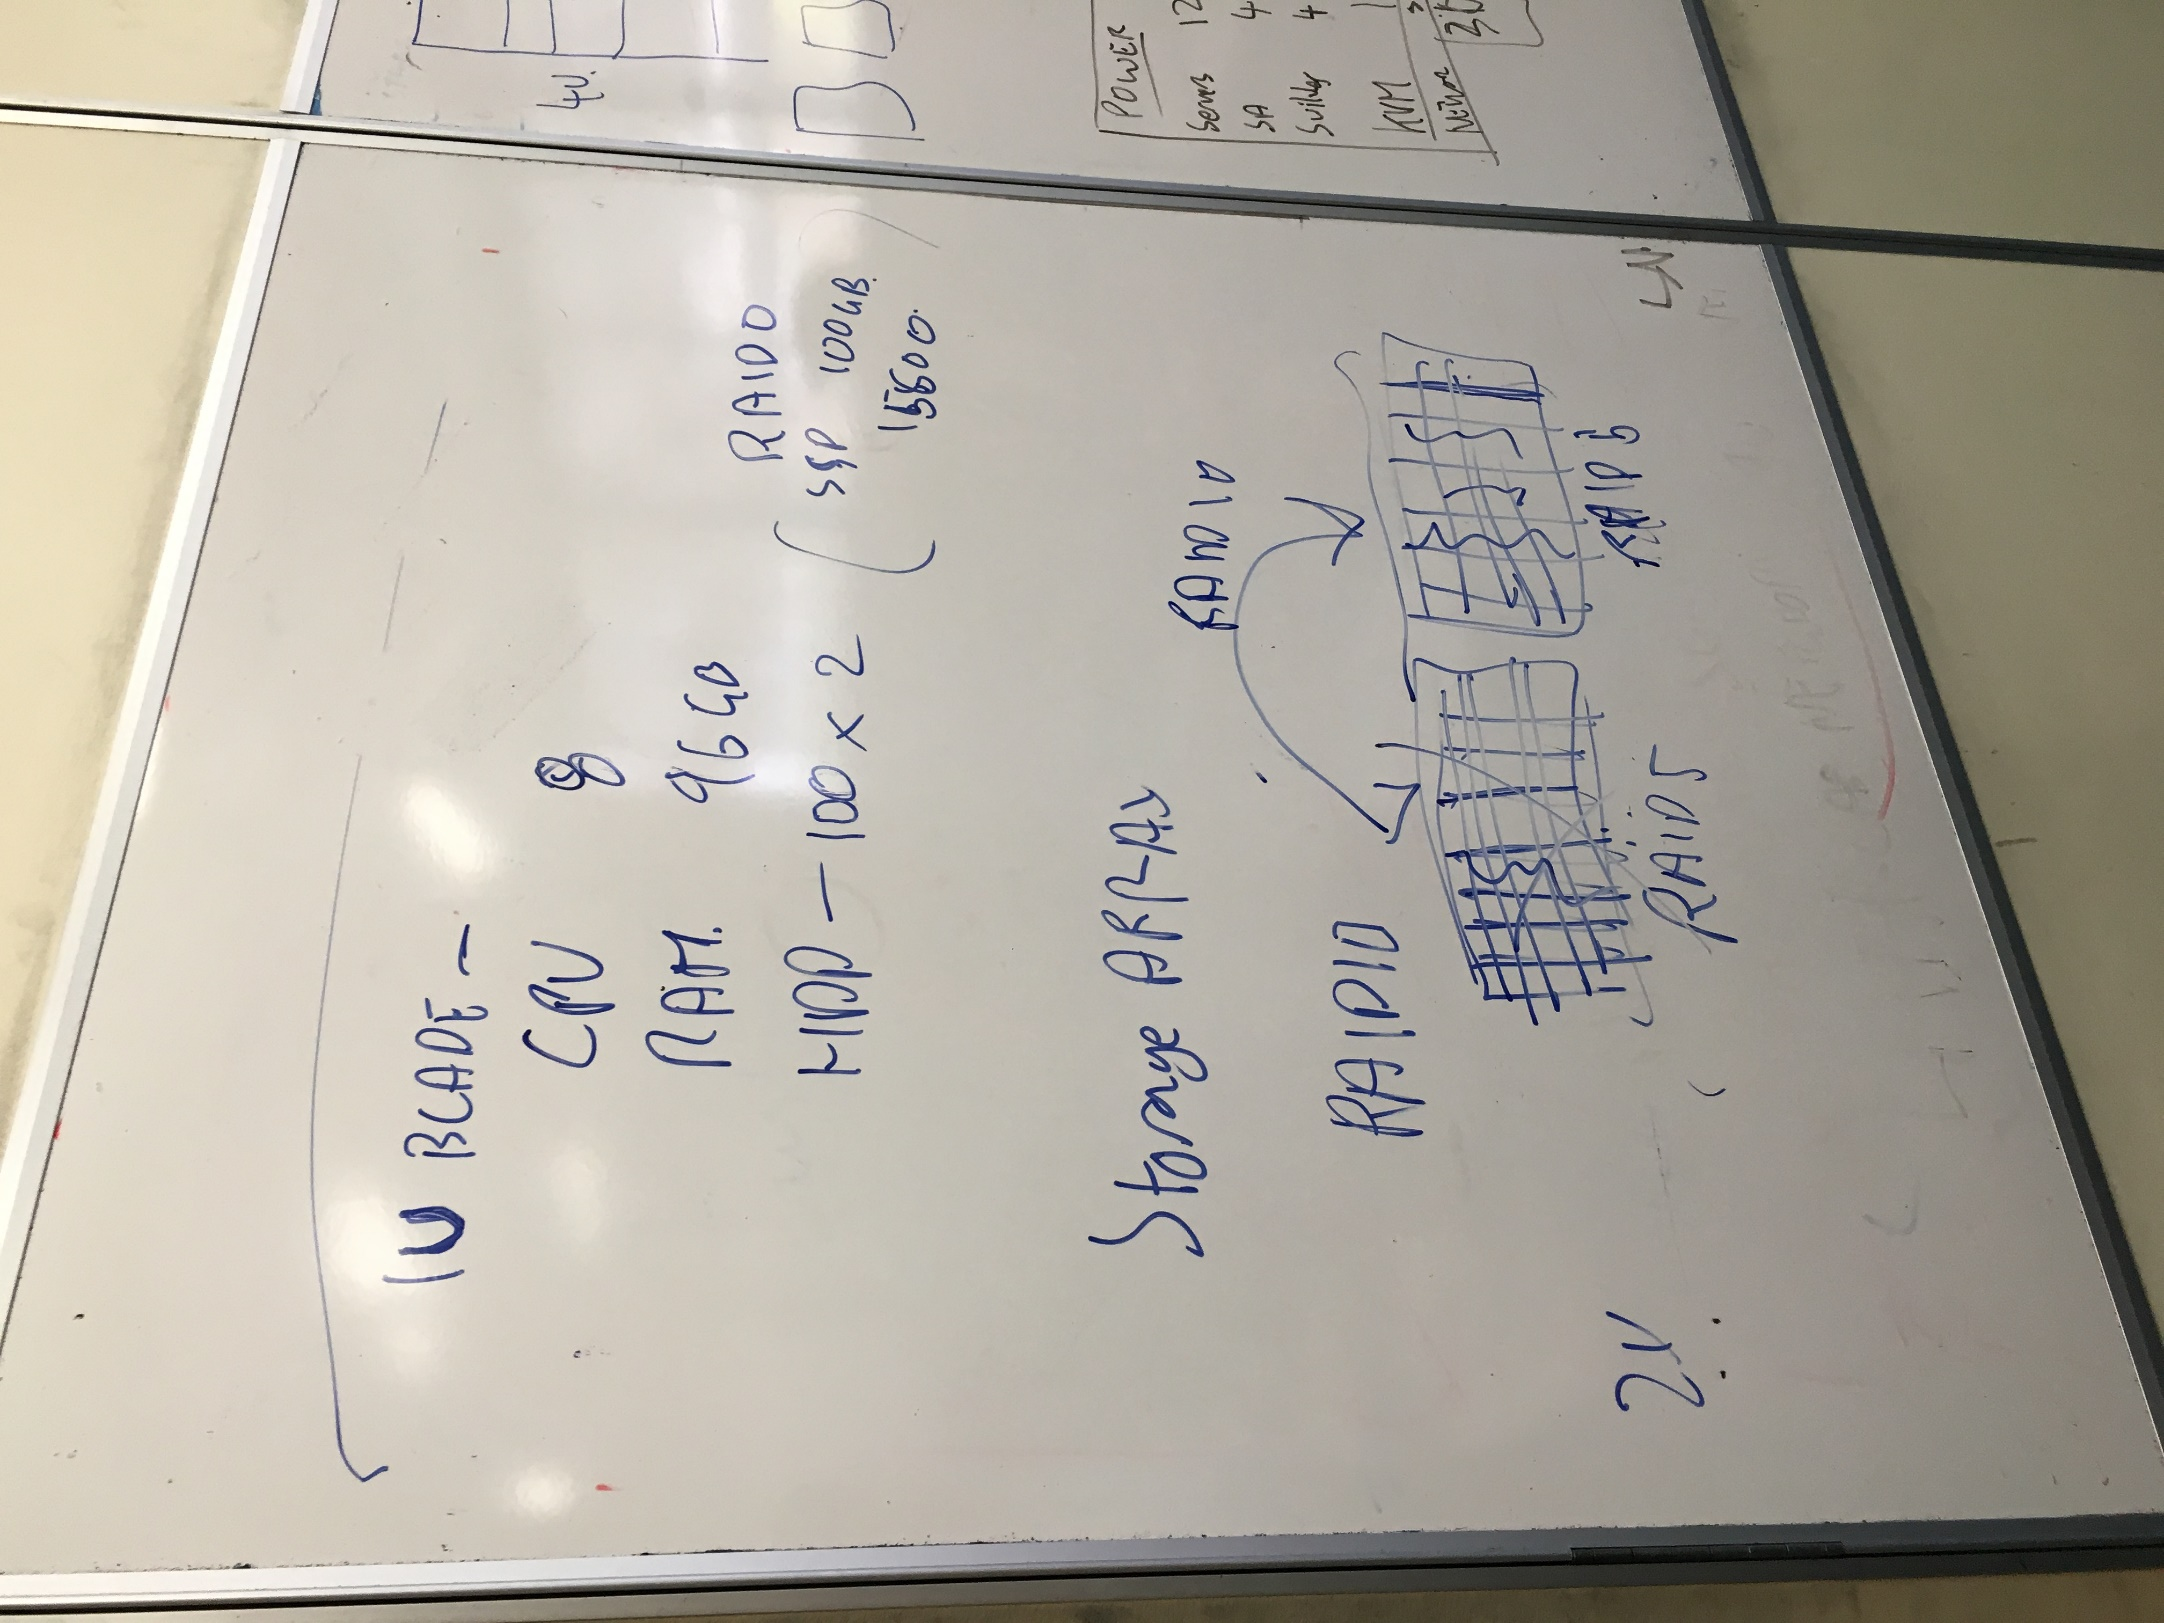 1U BLADE -
CPU 8
RAM. 96GB
HDD - 100 x 2
RAID0
SSD 100GB.
15600.
Storage ARRAY
RAID10
RAID10
RAID 5
RAID 5
2U
4U.
POWER
Servers 12
SA 4
KVM 1